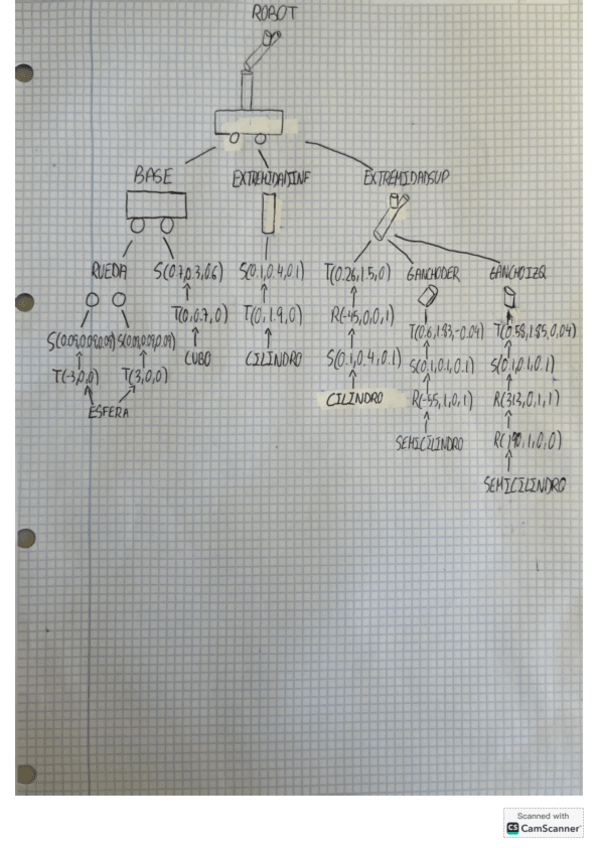 ROBOT
BASE EXTREMIDADINF EXTREMIDADSUP
RUEDA S(0.7,0.3,0.6) S(0.1,0.4,0.1) T(0.26,1.5,0) GANCHODER GANCHOIZQ
T(0,0.7,0) T(0,1.9,0) R(-45,0,0,1) T(0.6,1.83,-0.04) T(0.58,1.85,0.04)
S(0.09,0.09,0.09) S(0.09,0.09,0.09) CUBO CILINDRO S(0.1,0.4,0.1) S(0.1,0.1,0.1) S(0.1,0.1,0.1)
T(-3,0,0) T(3,0,0) CILINDRO R(-55,1,0,1) R(313,0,1,1)
ESFERA SEMICILINDRO R(190,1,0,0)
SEMICILINDRO
Scanned with
CS CamScanner